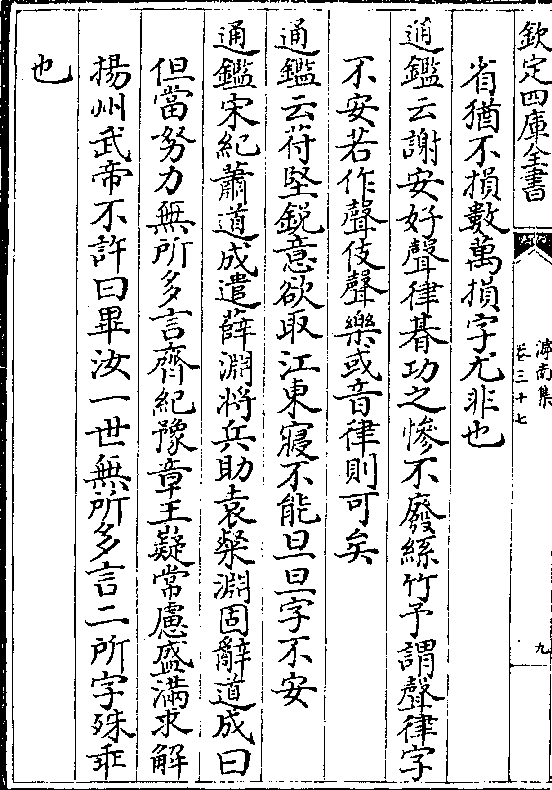 欽定四庫全書
滹南集
卷三十七
九
省猶不損數萬損字尤非也
通鑑云謝安好聲律朞功之慘不廢絲竹予謂聲律字
不安若作聲伎聲樂或音律則可矣
通鑑云苻堅銳意欲取江東寢不能旦旦字不安
通鑑宋紀蕭道成遣薛淵將兵助袁粲淵固辭道成曰
但當努力無所多言齊紀豫章王嶷常慮盛滿求解
揚州武帝不許曰畢汝一世無所多言二所字殊乖
也